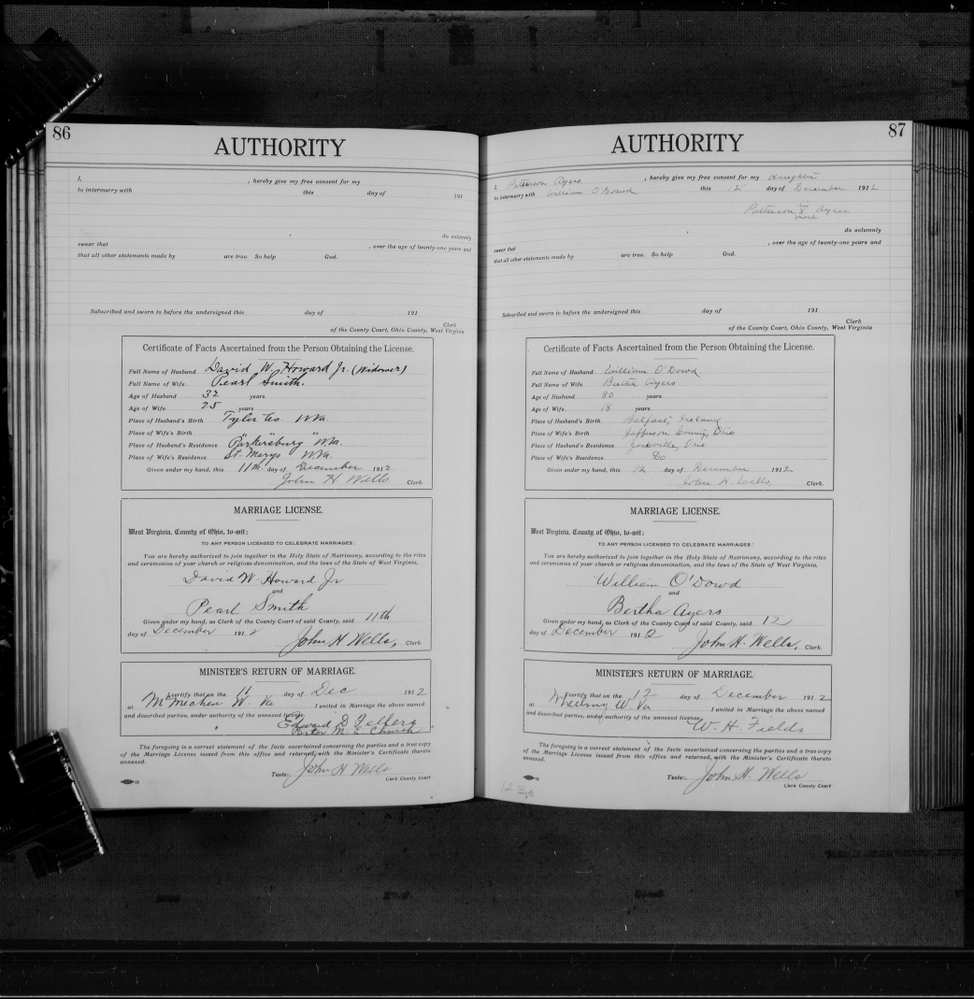 86
AUTHORITY
I, , hereby give my free consent for my
to intermarry with this day of 191
do solemnly
swear that , over the age of twenty-one years and
that all other statements made by are true. So help God.
Subscribed and sworn to before the undersigned this day of 191
Clerk
of the County Court, Ohio County, West Virginia
Certificate of Facts Ascertained from the Person Obtaining the License.
Full Name of Husband David W. Howard Jr. (Widower)
Full Name of Wife Pearl Smith.
Age of Husband 32 years
Age of Wife 25 years
Place of Husband's Birth Tyler Co W.Va.
Place of Wife's Birth " "
Place of Husband's Residence Parkersburg W.Va.
Place of Wife's Residence St. Marys W.Va.
Given under my hand, this 11th day of December 1912
John H Wells Clerk.
MARRIAGE LICENSE.
West Virginia, County of Ohio, to-wit:
TO ANY PERSON LICENSED TO CELEBRATE MARRIAGES:
You are hereby authorized to join together in the Holy State of Matrimony, according to the rites
and ceremonies of your church or religious denomination, and the laws of the State of West Virginia,
David W Howard Jr
and
Pearl Smith
Given under my hand, as Clerk of the County Court of said County, said 11th
day of December 1912 John H Wells, Clerk.
MINISTER'S RETURN OF MARRIAGE.
I certify that on the 11 day of Dec 1912
at McMechen W. Va I united in Marriage the above named
and described parties, under authority of the annexed license.
Edward D
Pastor M. E. Church
The foregoing is a correct statement of the facts ascertained concerning the parties and a true copy
of the Marriage License issued from this office and returned, with the Minister's Certificate thereto
annexed.
Teste: John H Wells
Clerk County Court
87
AUTHORITY
I, Patterson Ayers , hereby give my free consent for my daughter
to intermarry with William O'Dowd this 12 day of December 1912
Patterson X Ayers
mark
do solemnly
swear that , over the age of twenty-one years and
that all other statements made by are true. So help God.
Subscribed and sworn to before the undersigned this day of 191
Clerk
of the County Court, Ohio County, West Virginia
Certificate of Facts Ascertained from the Person Obtaining the License.
Full Name of Husband William O'Dowd
Full Name of Wife Ayers
Age of Husband 30 years
Age of Wife 18 years
Place of Husband's Birth Belfast, Ireland
Place of Wife's Birth Jefferson County, Ohio
Place of Husband's Residence Yorkville, Ohio
Place of Wife's Residence Do
Given under my hand, this 12 day of December 1912
John H. Wells Clerk.
MARRIAGE LICENSE.
West Virginia, County of Ohio, to-wit:
TO ANY PERSON LICENSED TO CELEBRATE MARRIAGES:
You are hereby authorized to join together in the Holy State of Matrimony, according to the rites
and ceremonies of your church or religious denomination, and the laws of the State of West Virginia,
William O'Dowd
and
Bertha Ayers
Given under my hand, as Clerk of the County Court of said County, said 12
day of December 1912 John H. Wells, Clerk.
MINISTER'S RETURN OF MARRIAGE.
I certify that on the 12 day of December 1912
at Wheeling W. Va I united in Marriage the above named
and described parties, under authority of the annexed license.
W. H. Fields
The foregoing is a correct statement of the facts ascertained concerning the parties and a true copy
of the Marriage License issued from this office and returned, with the Minister's Certificate thereto
annexed.
Teste: John H. Wells
Clerk County Court